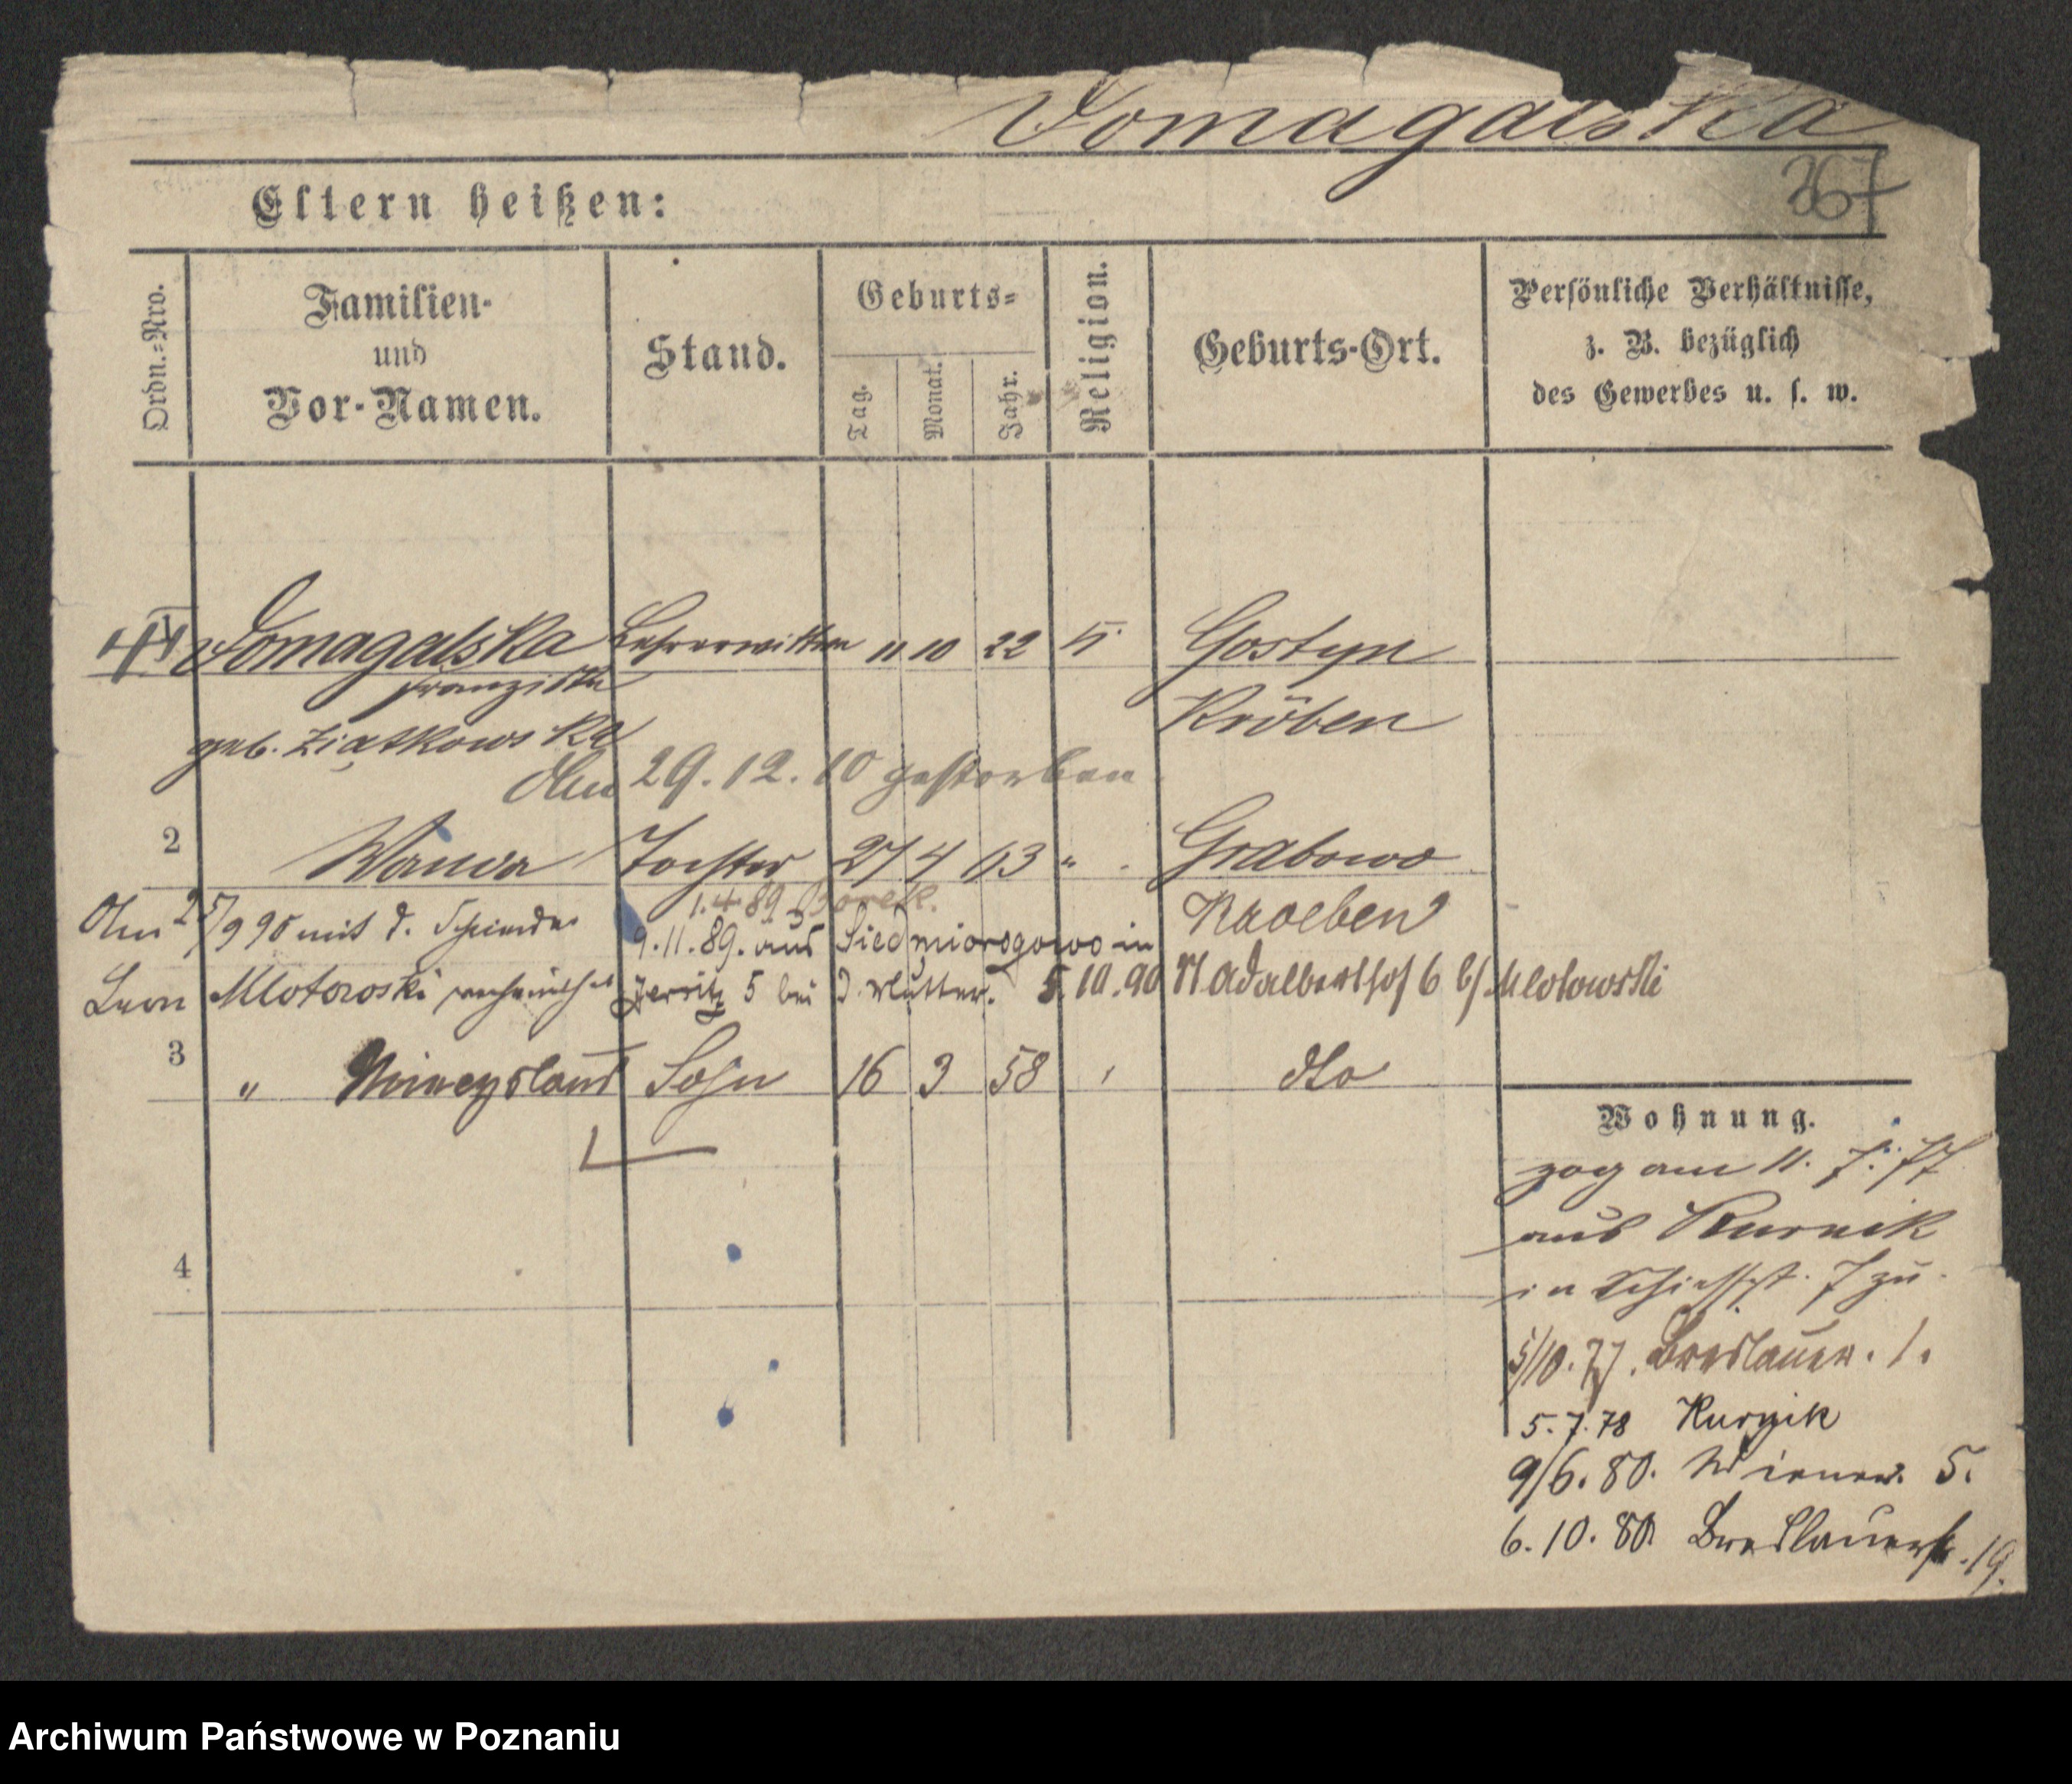 Domagalska
367
Eltern heißen:
Ordn.=Nro.
Familien-
und
Vor-Namen.
Stand.
Geburts=
Tag.
Monat.
Jahr.
Religion.
Geburts-Ort.
Persönliche Verhältnisse,
z. B. bezüglich
des Gewerbes u. s. w.
Domagalska Lehrerwittwe 11 10 22 k. Gostyn
Franziska
Kröben
geb. Ziątkowska
Am 29.12.10 gestorben
2 Wanda Tochter 27 4 63 " Grabowo
1.4 89 Borek.
Kroeben
Am 25/9 90 mit d.
9.11.89. aus Siedmiorogowo in
Leon Mlotowski verheirathet
Jersitz 5 bei d. Mutter. 5.10.90 St Adalberthof 6 b/ Mlotowski
3 " Miecyslaus Sohn 16 3 58 " dto
Wohnung.
zog am 11. 7. 77
aus Kurnik
in Schießst. 7 zu.
5/10.77. Breslauer. 1.
5.7.78 Kurnik
9/6.80. Wiener. 5.
6.10.80 Breslauerstr. 19.
4
Archiwum Państwowe w Poznaniu